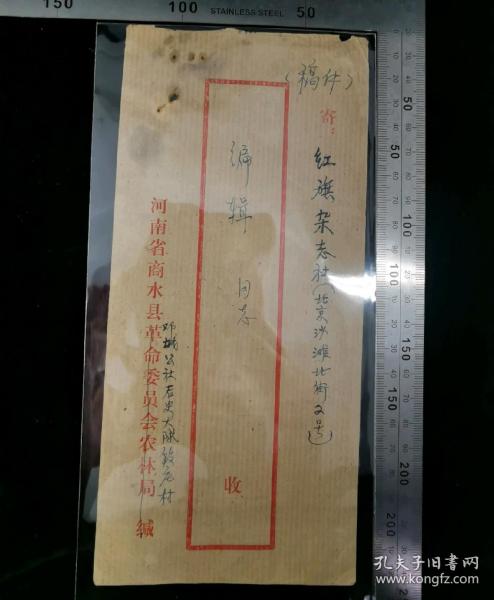 (稿件)
寄：红旗杂志社(北京沙滩北街2号)
编辑 同志 收
河南省商水县革命委员会农林局 缄
邓城公社后史大队
150 100 STAINLESS STEEL 50
50
100
150
200
50
100
150
200
孔夫子旧书网
www.kongfz.com